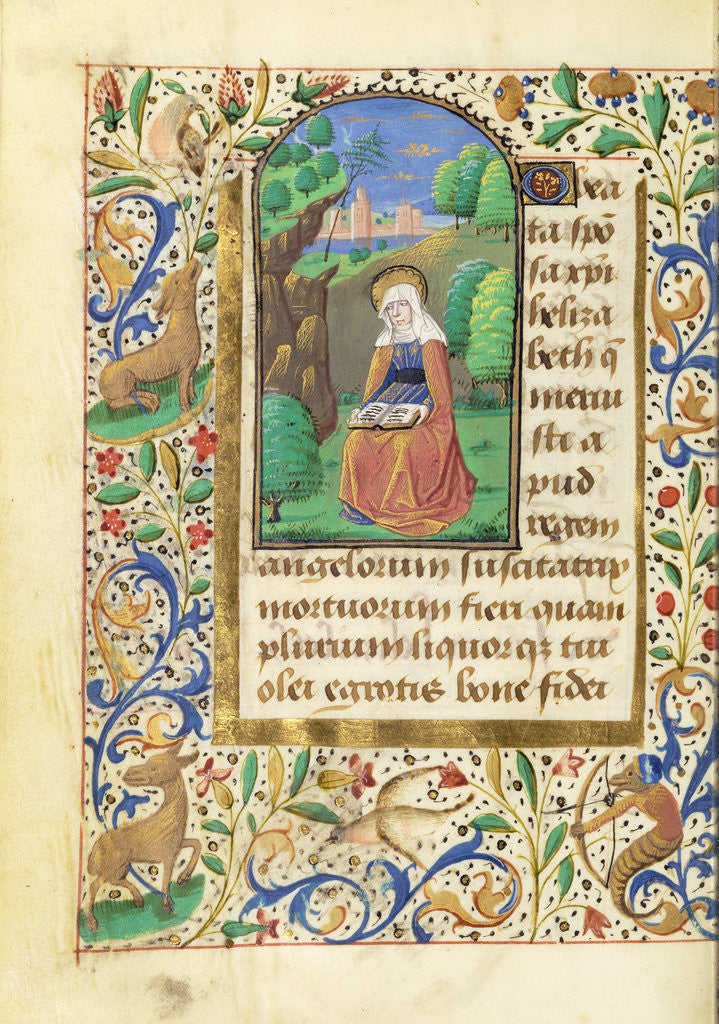 O bea
ta spō
sa xpi
heliza
beth q̄
meruı
sti a
pud
regem
angelorum suscitatrix
mortuorum fieri quam
plurium liquorqꝫ tui
olei egrotis bone fidei